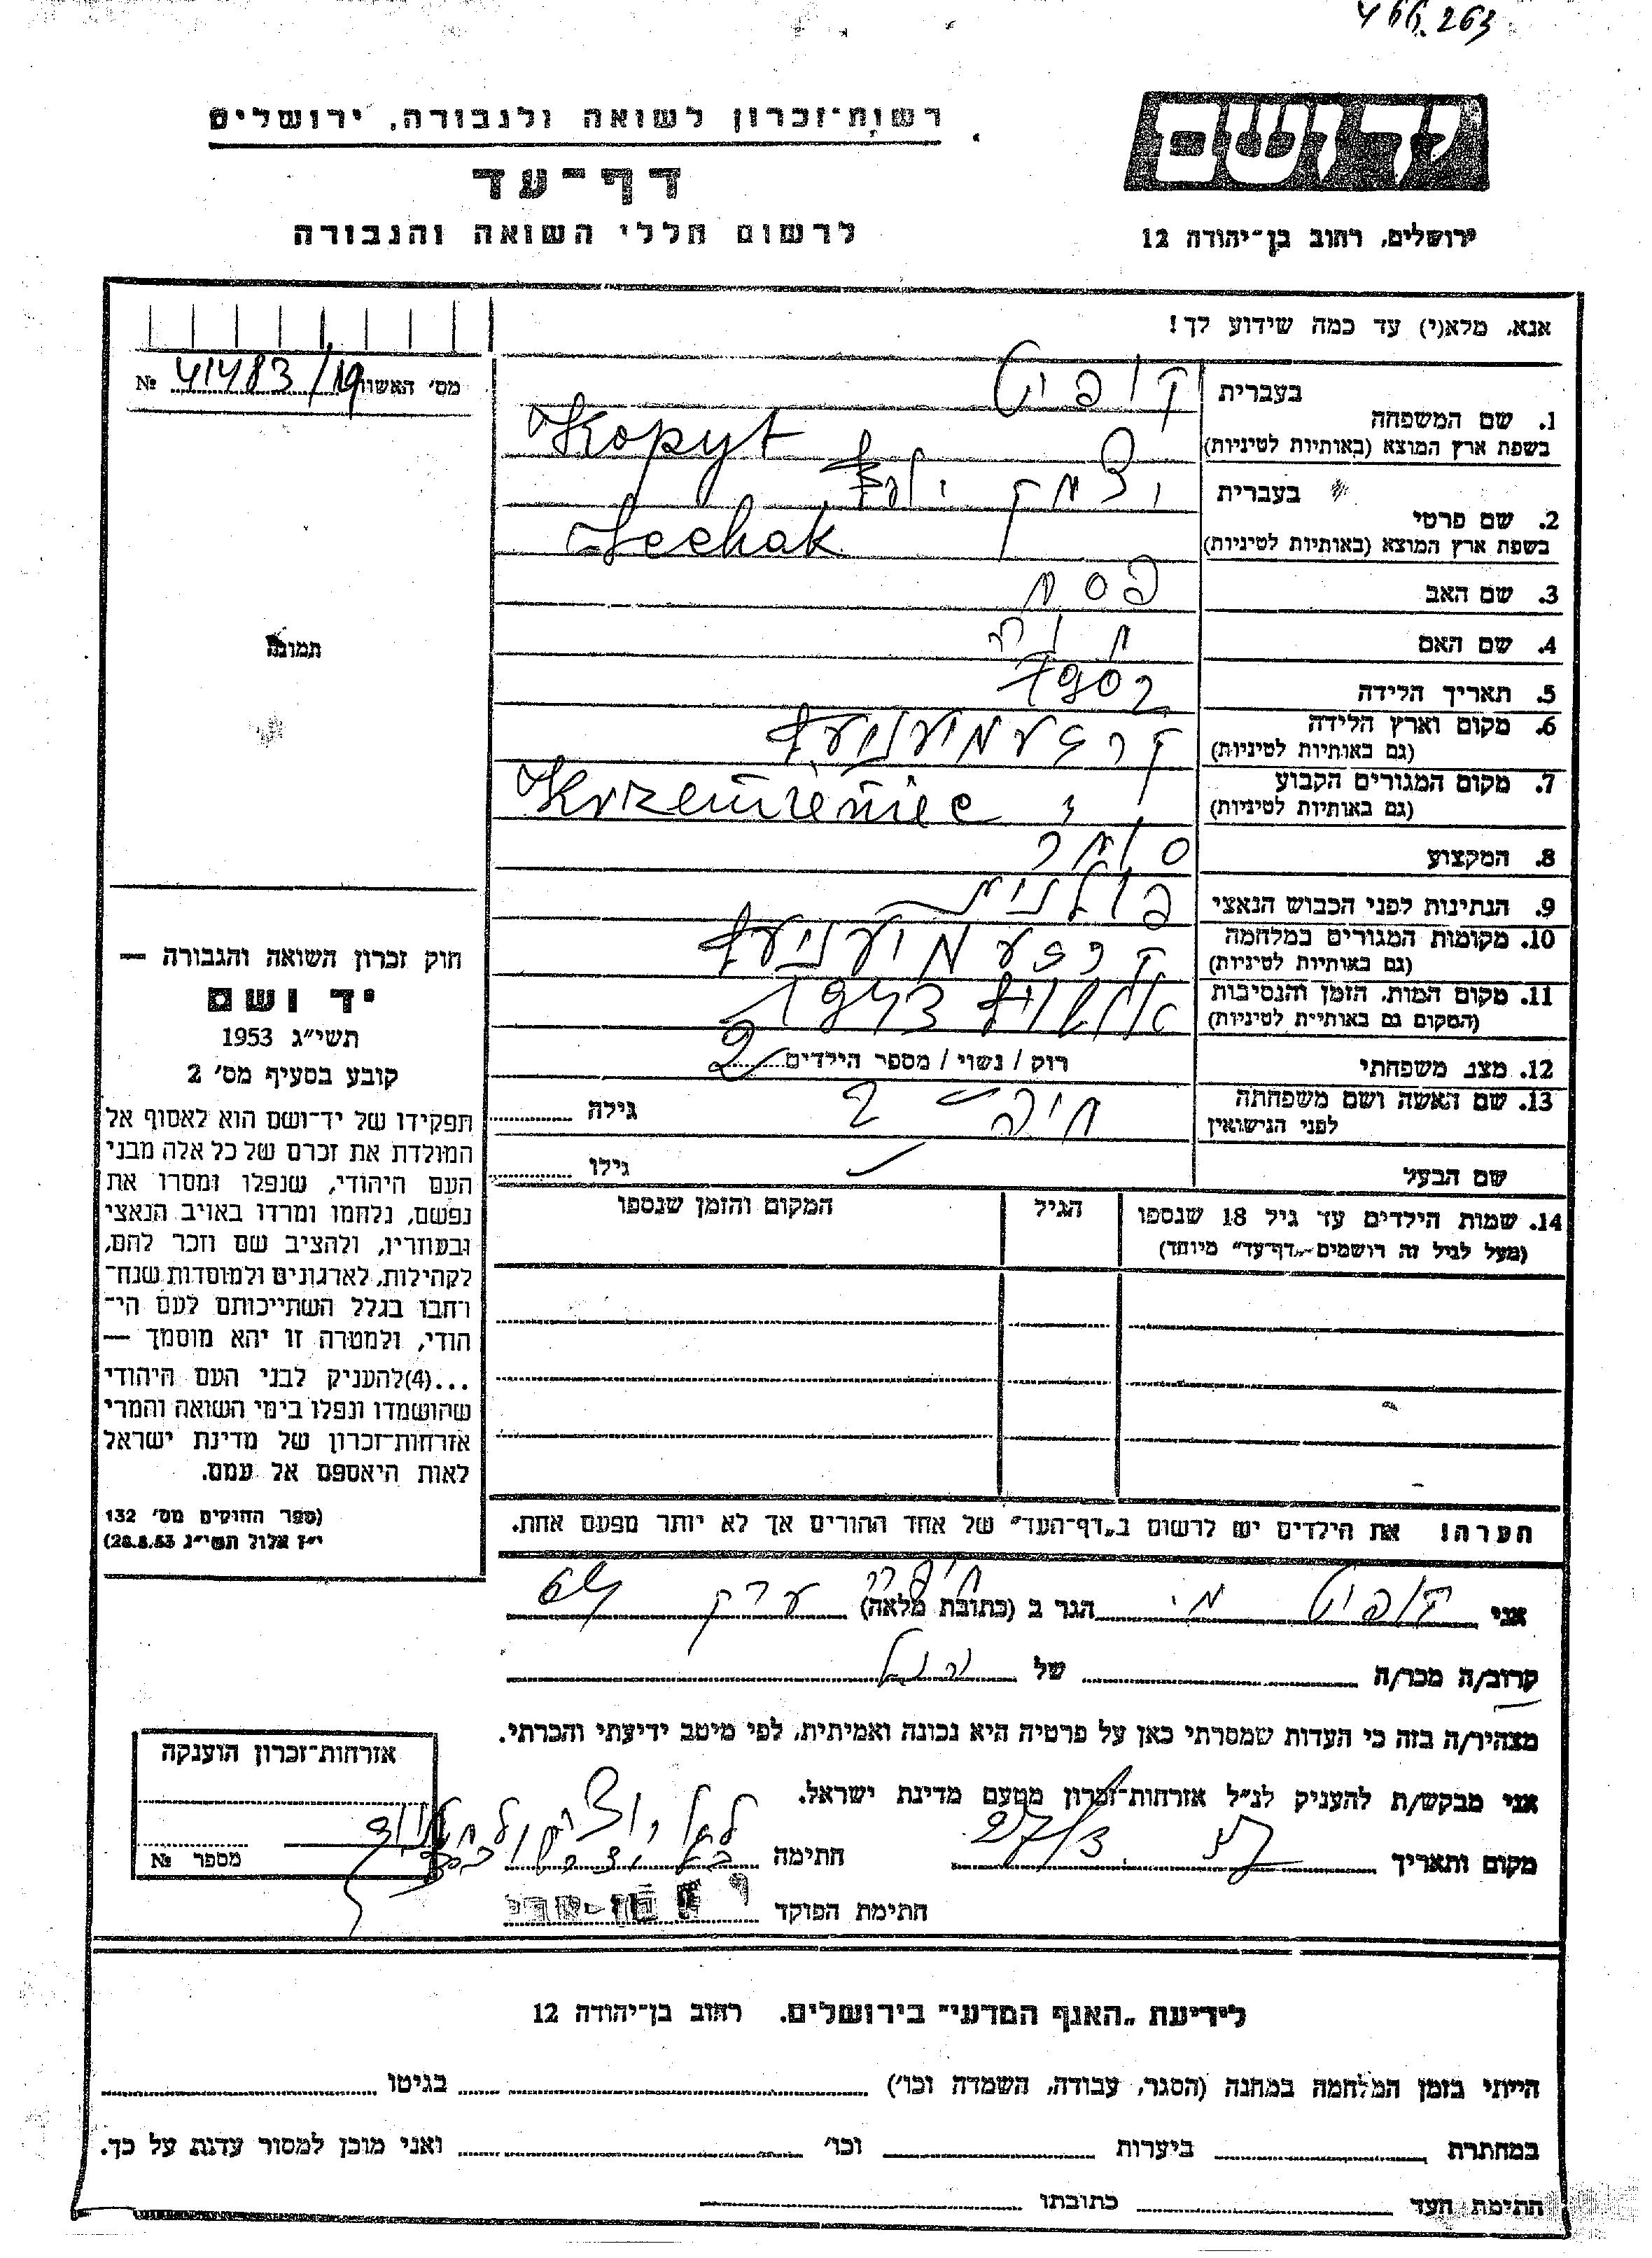 466.263
רשות־זכרון לשואה ולגבורה, ירושלים
דף־עד
לרשום חללי השואה והגבורה
יד ושם
ירושלים, רחוב בן־יהודה 12
אנא, מלא(י) עד כמה שידוע לך!
מס׳ האשה № 41483/19
בעברית קופיט
1. שם המשפחה
בשפת ארץ המוצא (באותיות לטיניות) Kopyt
בעברית יצחק
2. שם פרטי
בשפת ארץ המוצא (באותיות לטיניות) Icchak
3. שם האב פסח
4. שם האם
5. תאריך הלידה 1902
6. מקום וארץ הלידה קרזעמיעניעץ
(גם באותיות לטיניות)
7. מקום המגורים הקבוע Krzemieniec
(גם באותיות לטיניות)
8. המקצוע סוחר
9. הנתינות לפני הכבוש הנאצי פולנית
10. מקומות המגורים במלחמה קרזעמיעניעץ
(גם באותיות לטיניות)
11. מקום המות, הזמן והנסיבות 1943
(המקום גם באותיות לטיניות)
12. מצב משפחתי רוק / נשוי / מספר הילדים 2
13. שם האשה ושם משפחתה
לפני הנישואין
גילה
שם הבעל גילו
14. שמות הילדים עד גיל 18 שנספו הגיל המקום והזמן שנספו
(מעל לגיל זה רושמים „דף־עד” מיוחד)
הערה! את הילדים יש לרשום ב„דף־העד” של אחד ההורים אך לא יותר מפעם אחת.
תמונה
חוק זכרון השואה והגבורה —
יד ושם
תשי״ג 1953
קובע בסעיף מס׳ 2
תפקידו של יד־ושם הוא לאסוף אל
המולדת את זכרם של כל אלה מבני
העם היהודי, שנפלו ומסרו את
נפשם, נלחמו ומרדו באויב הנאצי
ובעוזריו, ולהציב שם וזכר להם,
לקהילות, לארגונים ולמוסדות שנח־
רבו בגלל השתייכותם לעם הי־
הודי, ולמטרה זו יהא מוסמך —
...(4)להעניק לבני העם היהודי
שהושמדו ונפלו בימי השואה והמרי
אזרחות־זכרון של מדינת ישראל
לאות היאספם אל עמם.
(ספר החוקים מס׳ 132
י״ז אלול תשי״ג 28.8.53)
אני קופיט הגר ב (כתובת מלאה) חיפה 64
קרוב/ה מכר/ה של
מצהיר/ה בזה כי העדות שמסרתי כאן על פרטיה היא נכונה ואמיתית, לפי מיטב ידיעתי והכרתי.
אני מבקש/ת להעניק לנ״ל אזרחות־זכרון מטעם מדינת ישראל.
מקום ותאריך 27/3 חתימה
חתימת הפוקד
אזרחות־זכרון הוענקה
מספר №
לידיעת „האגף המדעי” בירושלים, רחוב בן־יהודה 12
הייתי בזמן המלחמה במחנה (הסגר, עבודה, השמדה וכו׳) בגיטו
במחתרת ביערות וכו׳ ואני מוכן למסור עדות על כך.
חתימת העד כתובתו